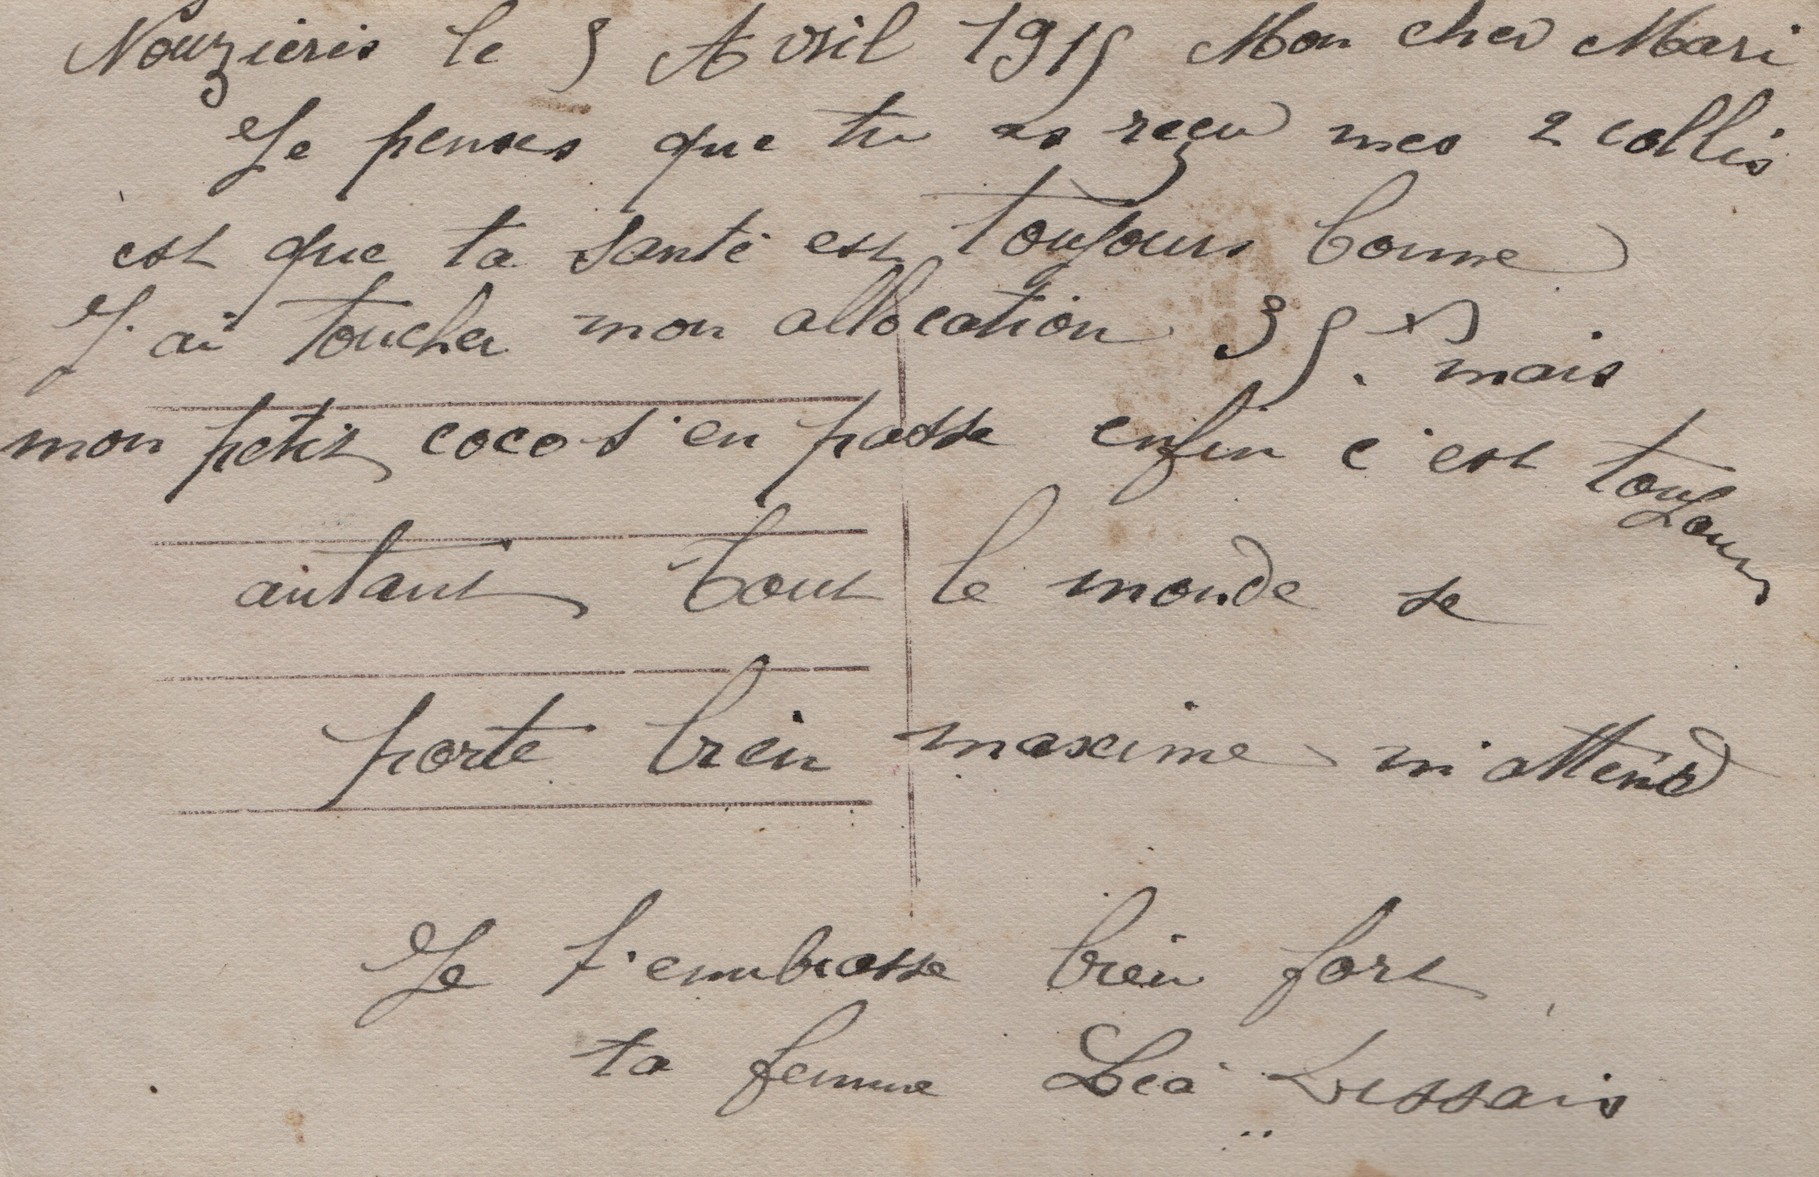 Nouzieris le 5 Avril 1915 Mon cher Mari
Je penses que tu as reçu mes 2 collis
est que ta santé est toujours bonne
J'ai toucher mon allocation 35 mais
mon petit coco s'en passe enfin c'est toujours
autant tout le monde se
porte bien maxime m'attend
Je t'embrasse bien fort
ta femme Léa